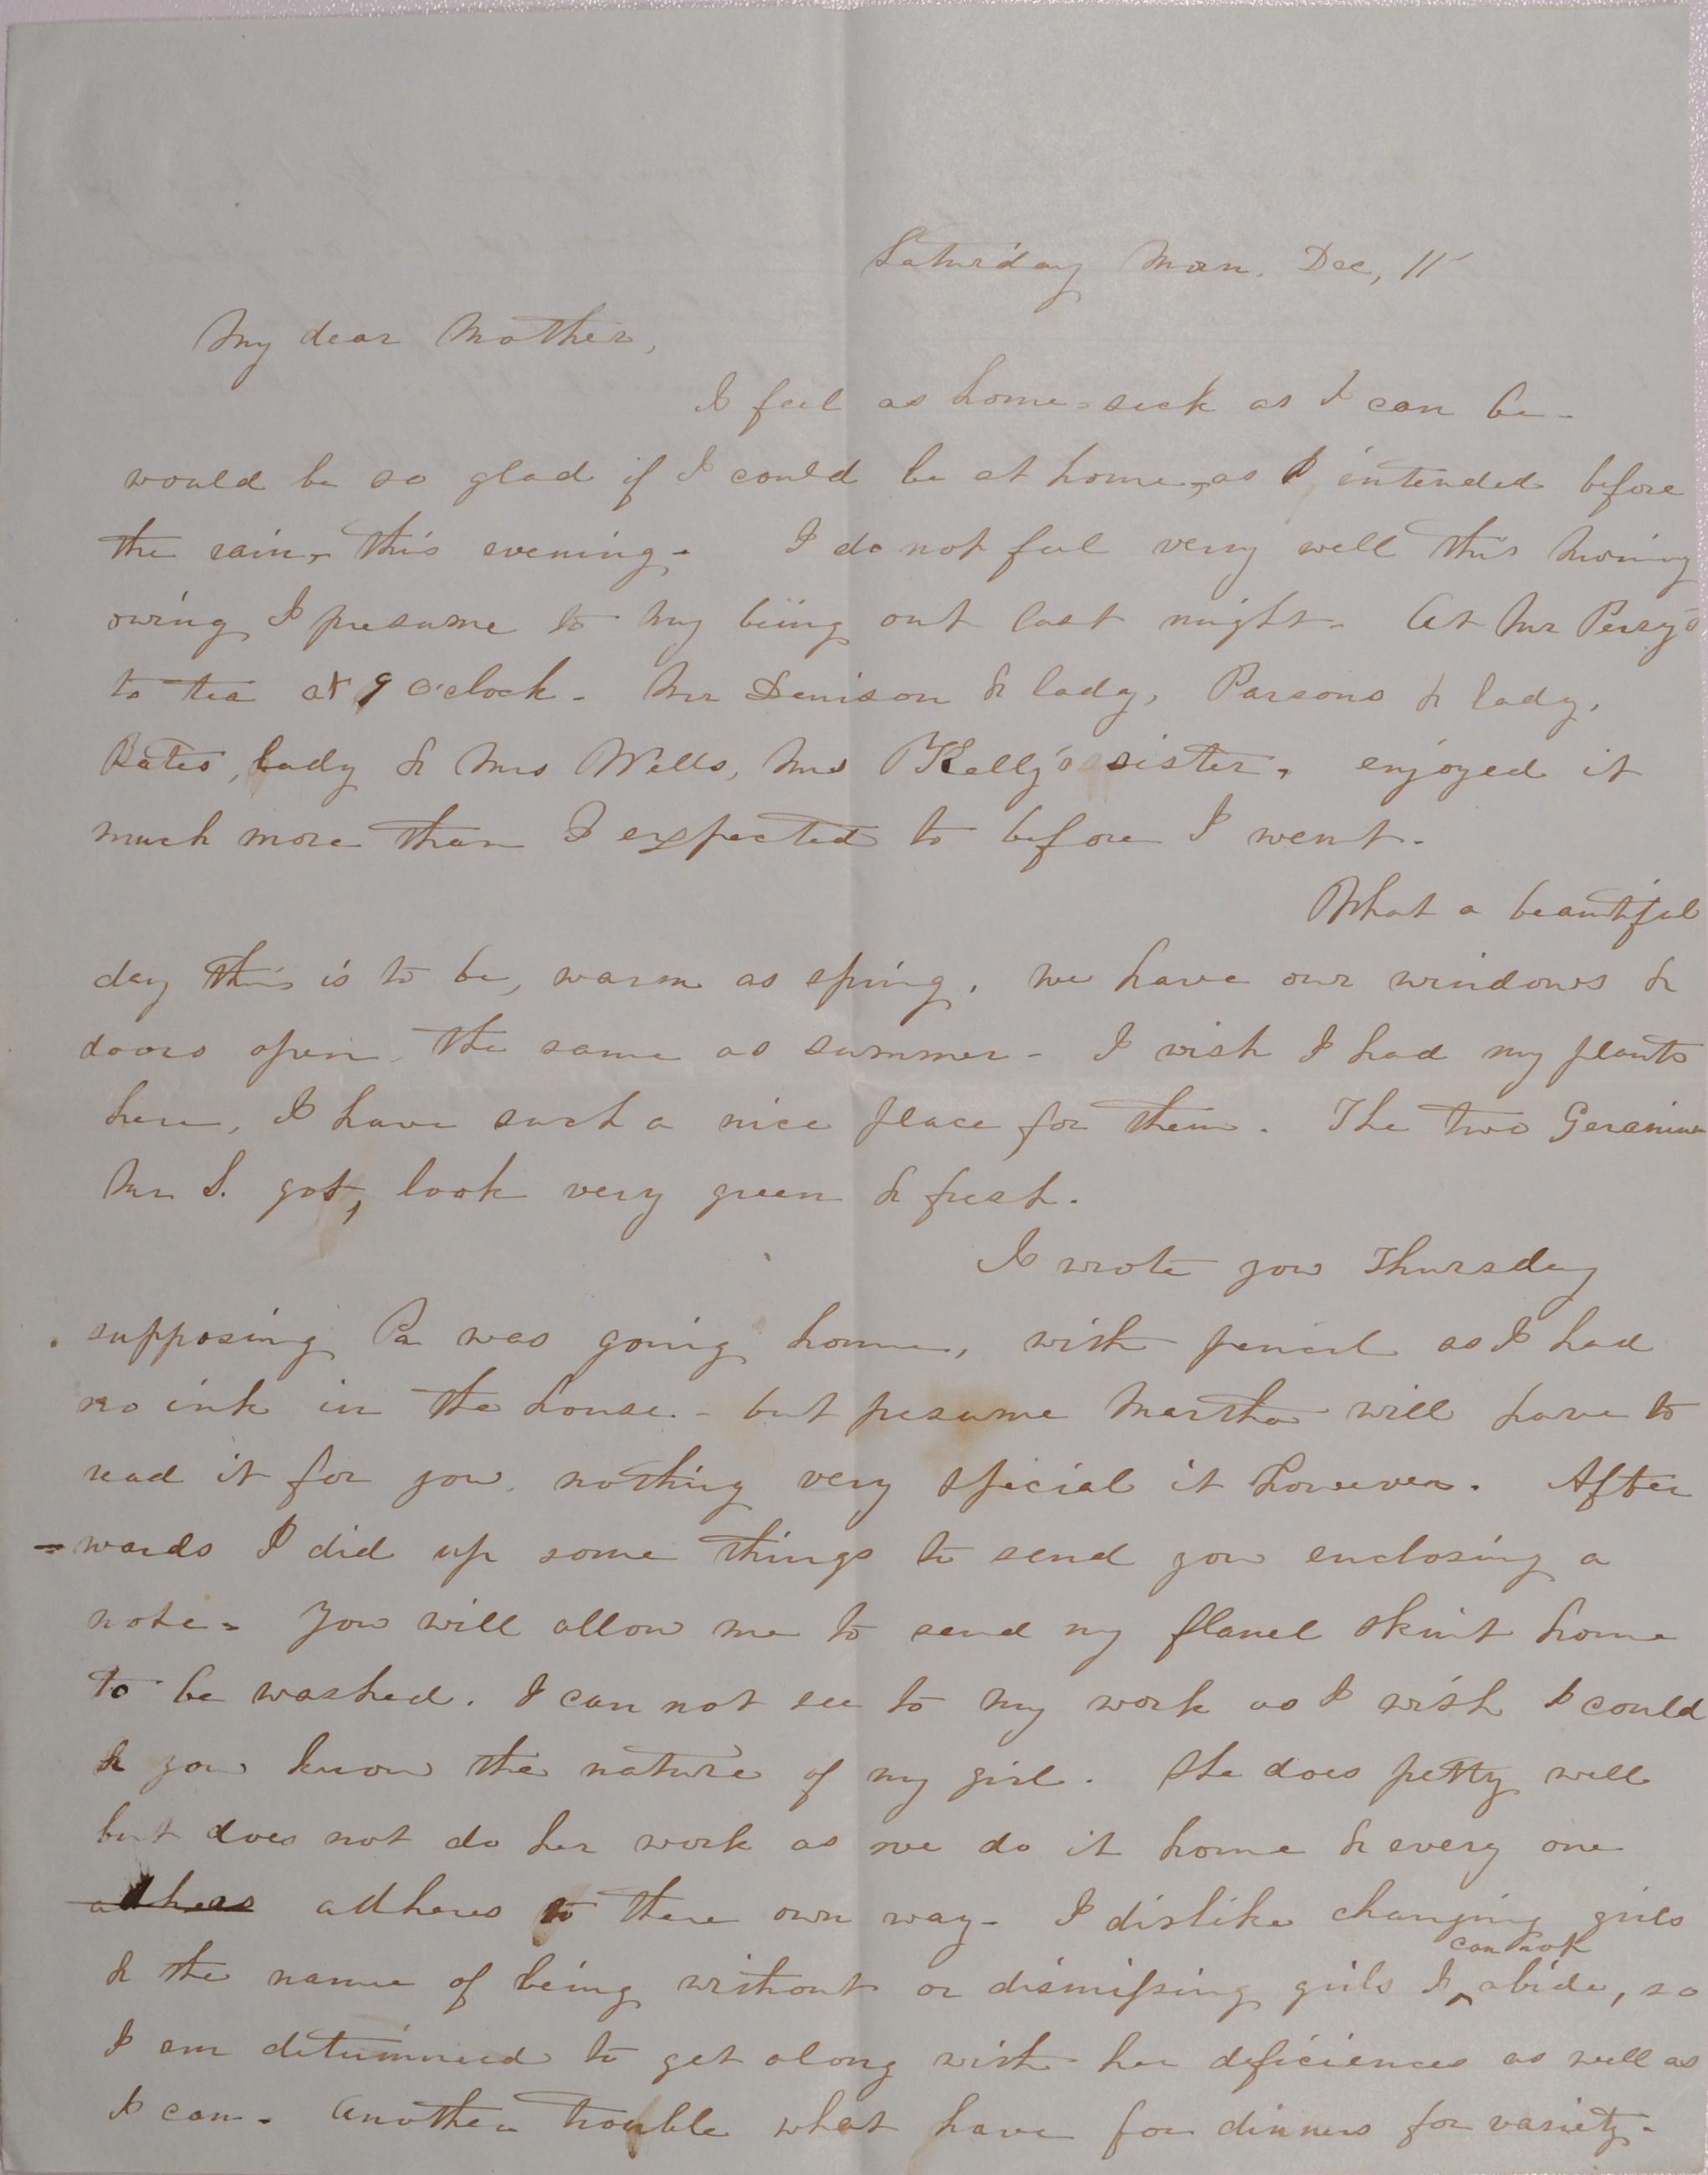 Saturday Morn. Dec, 11
My dear Mother,
I feel as home-sick as I can be -
would be so glad if I could be at home, as I intended before
the rain, this evening - I do not feel very well this morning
owing I presume to my being out last night. At Mr Perry's
to tea at 9 o'clock - Mr Denison & lady, Parsons & lady,
Bates, lady & Mrs Wells, Mrs Kelly's sister, enjoyed it
much more than I expected to before I went.
What a beautiful
day this is to be, warm as spring, we have our windows &
doors open the same as summer - I wish I had my plants
here, I have such a nice place for them. The two Geranium
Mr S. got, look very green & fresh.
I wrote you Thursday
supposing Pa was going home, with pencil as I had
no ink in the house - but presume Martha will have to
read it for you, nothing very special it however. After
-wards I did up some things to send you enclosing a
note - You will allow me to send my flanel skirt home
to be washed. I can not see to my work as I wish I could
& you know the nature of my girl. She does petty well
but does not do her work as we do it home & every one
adheas adheres to there own way - I dislike changing girls
& the name of being without or dismissing girls I can not abide, so
I am determined to get along with her deficiences as well as
I can. Another trouble what have for dinners for variety.